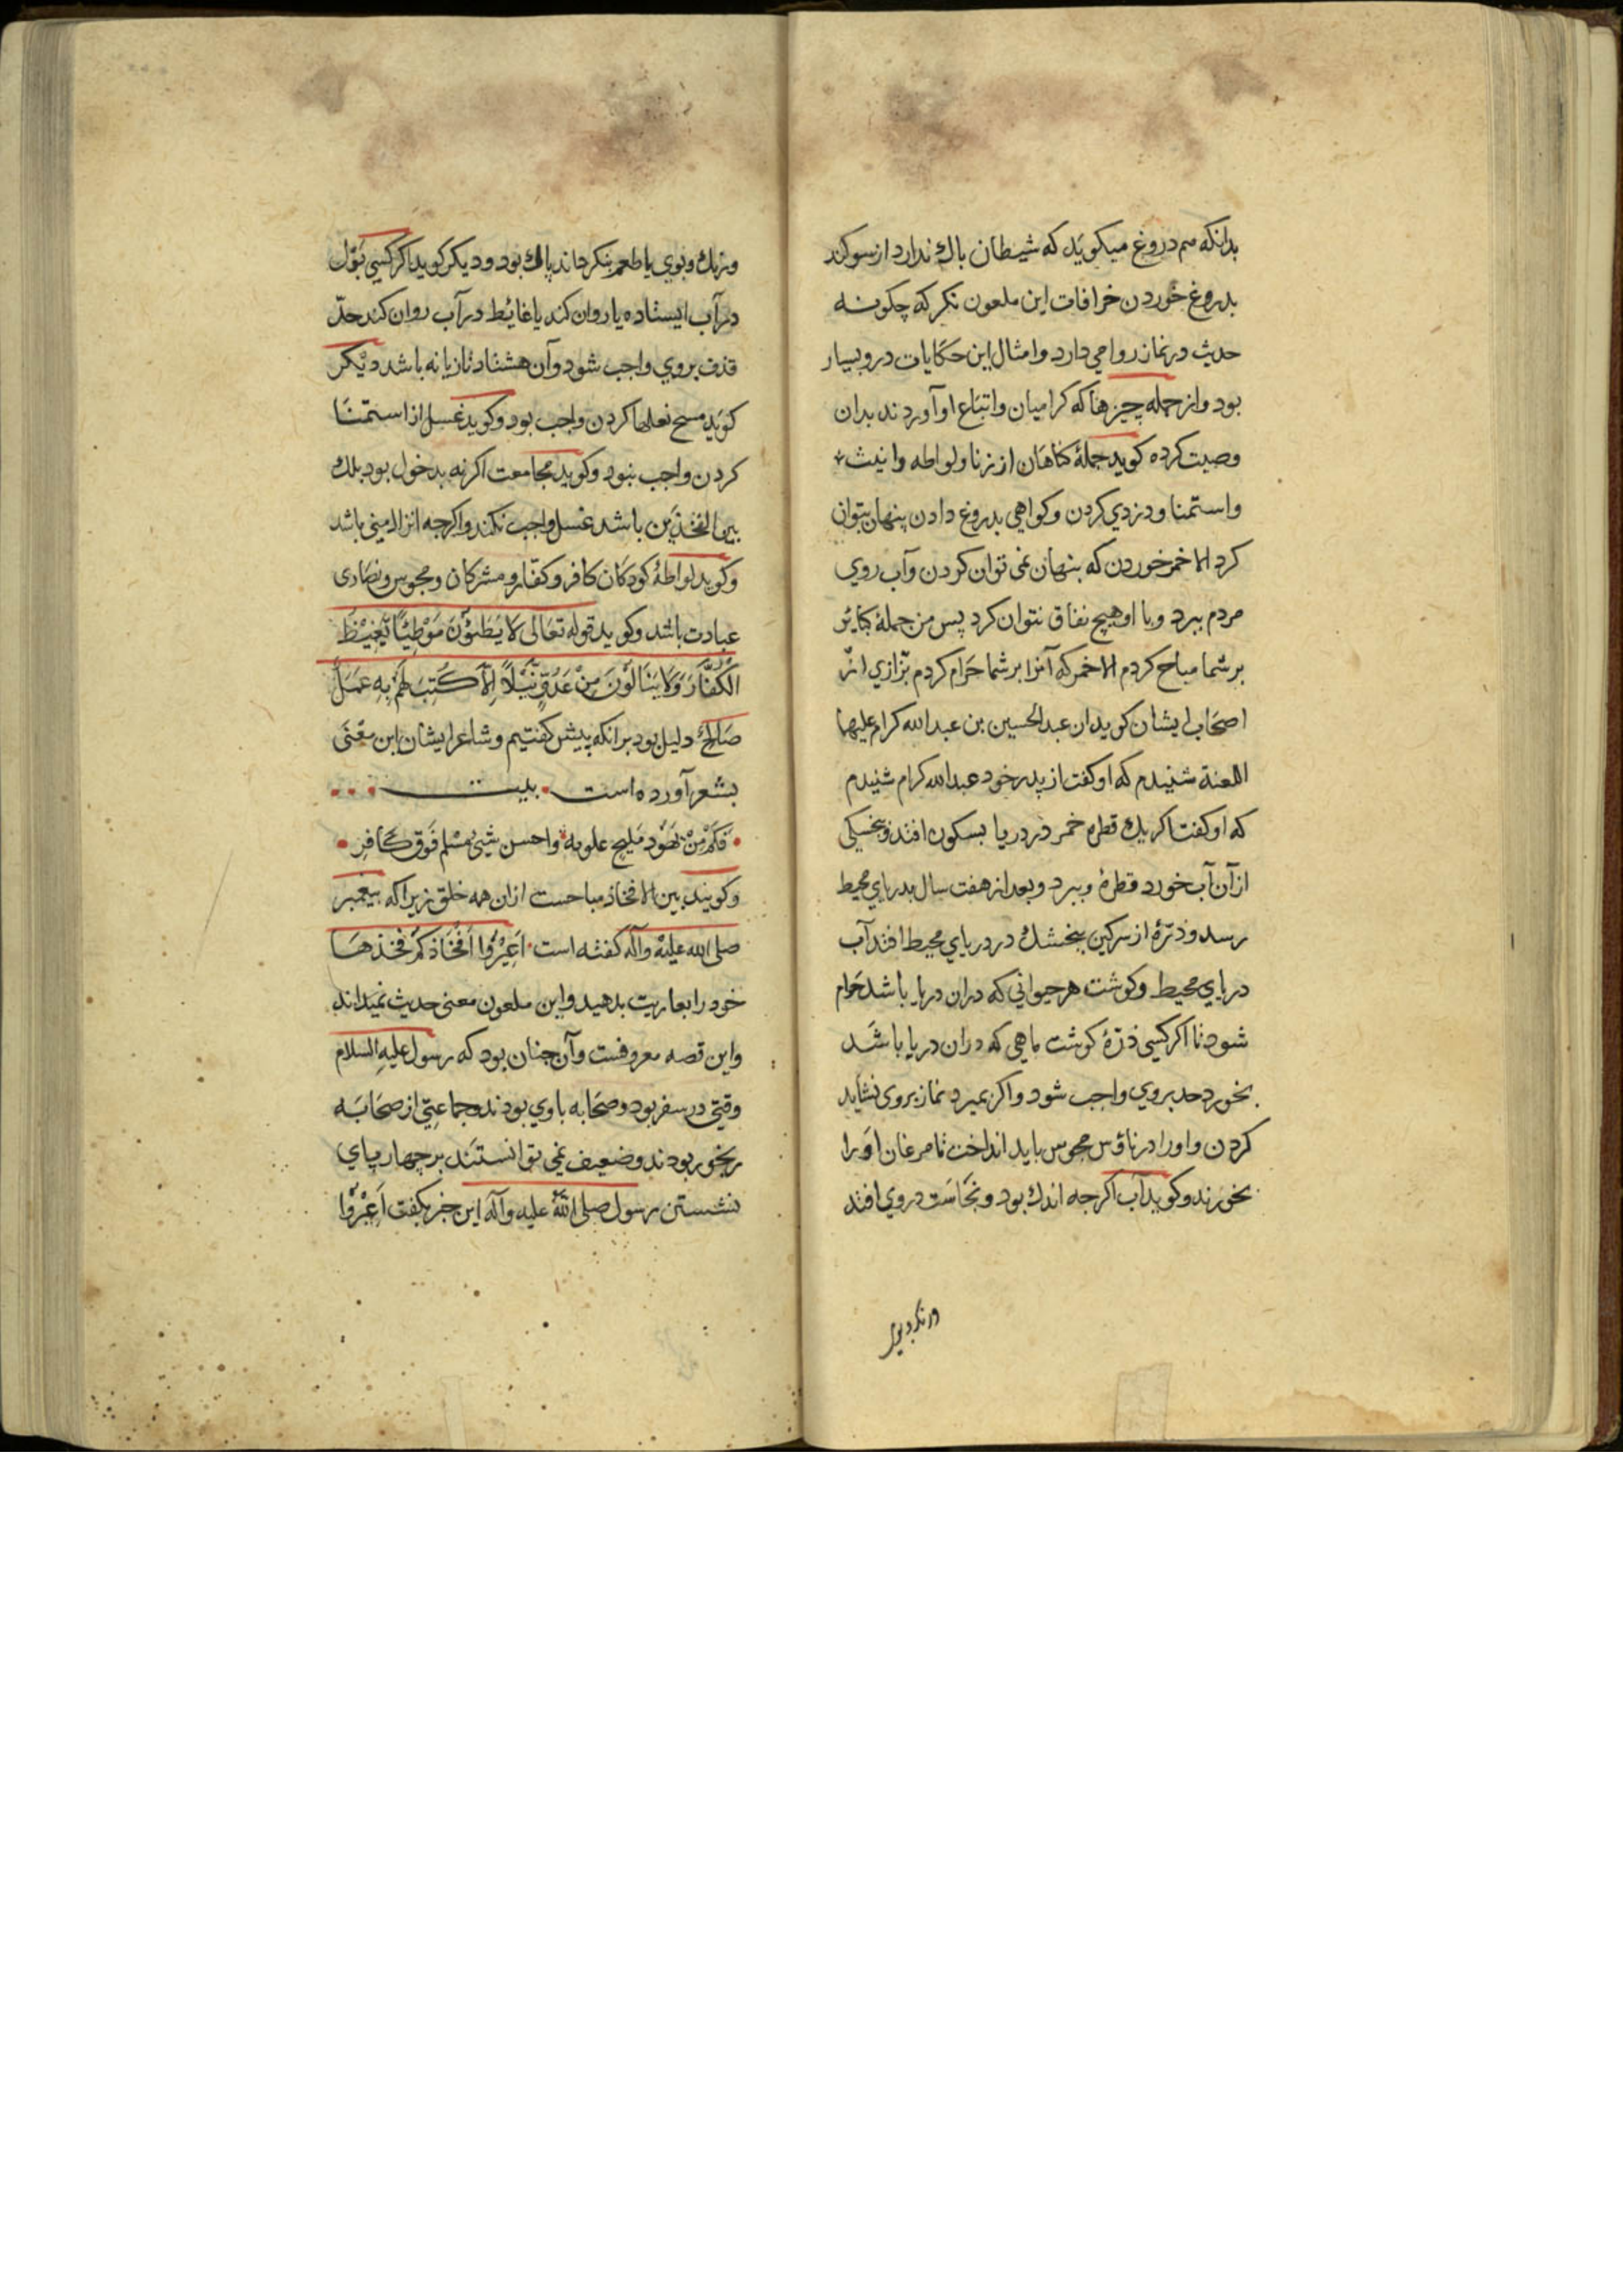 بدانکه هم دروغ میکوید که شیطان باك ندارد از سوکند
بدروغ خوردن خرافات این ملعون نکر که چکونه
حدیث در نماز روا می دارد و امثال این حکایات درو بسیار
بود و از جمله چیزها که کرامیان و اتباع او آوردند بدان
وصیت کرده کوید جملۀ کناهان از زنا و لواطه وانیث
و استمنا و دزدي کردن و کواهي بدروغ دادن پنهان بتوان
کرد الا خمر خوردن که پنهان نمی توان کردن و آب روي
مردم ببرد و با او هیچ نفاق نتوان کرد پس من جملۀ کبایر
بر شما مباح کردم الا خمر که آنرا بر شما حرام کردم بزازي از
اصحاب ایشان کوید ان عبدالحسین بن عبدالله کرام علیهما
اللعنة شنیدم که او کفت از پدر خود عبدالله کرام شنیدم
که او کفت اکر یك قطره خمر در دریا بسکون افتد و بخسکی
از آن آب خورد قطرۀ وببرد و بعد از هفت سال بدریاي محیط
رسد و ذرۀ از سرکین بنخشك در دریاي محیط افتد آب
دریاي محیط و کوشت هر حیوانی که دران دریا باشد حرام
شود تا اکر کسی ذرۀ کوشت ماهی که دران دریا باشد
بخورد حد بروي واجب شود و اکر بمیرد نماز بروی نشاید
کردن و اورا در ناؤس مجوس باید انداخت تا مرغان اورا
بخورند و کوید آب اکرجه اندك بود و نجاست دروي افتد
و رنك و بوي
ورنك و بوي یا طعم بنکر حاند پاك بود و دیکر کوید اکر کسی بول
در آب ایستاده یا روان کند یا غائط در آب روان کند حد
قذف بروي واجب شود و آن هشتاد تازیانه باشد دیکر
کوید مسح نعلها کردن واجب بود و کوید غسل از استمنا
کردن واجب نبود و کوید مجامعت اکر نه بدخول بود بلك
بین الفخذین باشد غسل واجب نکند و اکرجه انزال منی باشد
و کوید لواطۀ کودکان کافر و کفار و مشرکان و مجوس و نصاری
عبادت باشد و کوید قوله تعالی لا يَطَئُونَ مَوْطِئًا يَغِيظُ
الْكُفَّارَ وَلَا يَنَالُونَ مِنْ عَدُوٍّ نَيْلًا إِلَّا كُتِبَ لَهُمْ بِهِ عَمَلٌ
صَالِحٌ دلیل بود برانکه پیش کفتیم و شاعر ایشان این معنی
بشعر آورده است بیت
فَكَمْ مِنْ يَهُودٍ مَلِيحٍ علوته واحسن شيئ مسلم فوق كافر
و کویند بین الافخاذ مباحست ازان همه خلق زیراکه پیغمبر
صلی الله علیه و آله کفته است اَعِيْرُوا اَفْخَاذَكُمْ فخذها
خود را بعاریت بدهید و این ملعون معنی حدیث نمیداند
و این قصه معروفست و آن چنان بود که رسول علیه السلام
وقتی در سفر بود و صحابه با وي بودند و جماعتی از صحابه
رنجور بودند و ضعیف نمی توانستند بر جهار پاي
نشستن رسول صلی الله علیه و آله این خبر بکفت اَعِيْرُوا